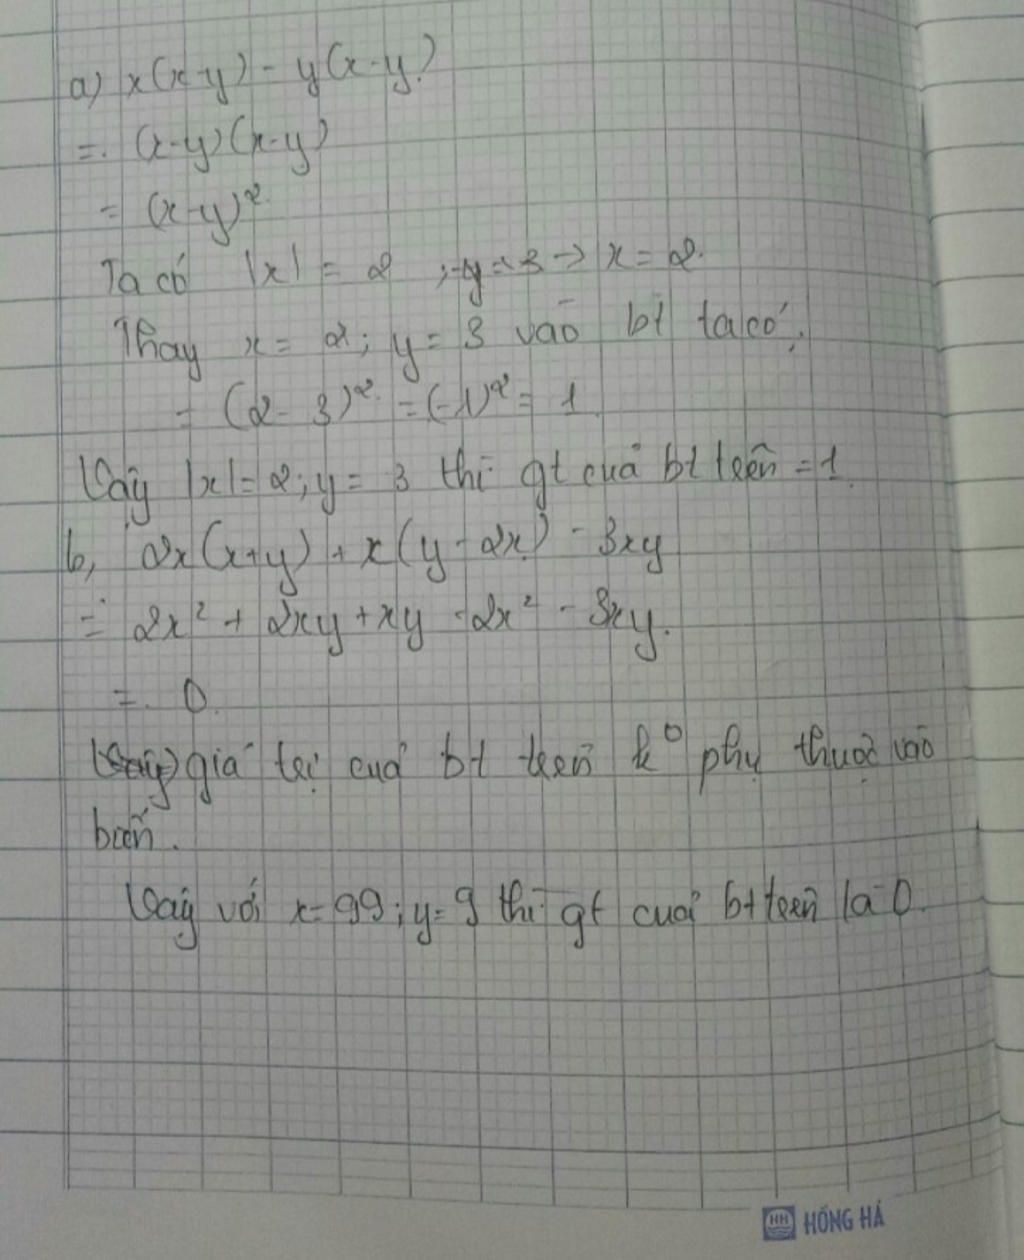 a) x(x-y) - y(x-y)
= (x-y)(x-y)
= (x-y)²
Ta có |x| = 2 ; y = 3 → x = 2.
Thay x = 2; y = 3 vào bt ta có:
= (2 - 3)² = (-1)² = 1
Vậy |x| = 2; y = 3 thì gt của bt trên = 1.
b, 2x(x+y) + x(y-2x) - 3xy
= 2x² + 2xy + xy - 2x² - 3xy.
= 0.
(Vậy) giá trị của bt trên k⁰ phụ thuộc vào
biến.
Vậy với x = 99; y = 9 thì gt của bt trên là 0.
HH HỒNG HÀ